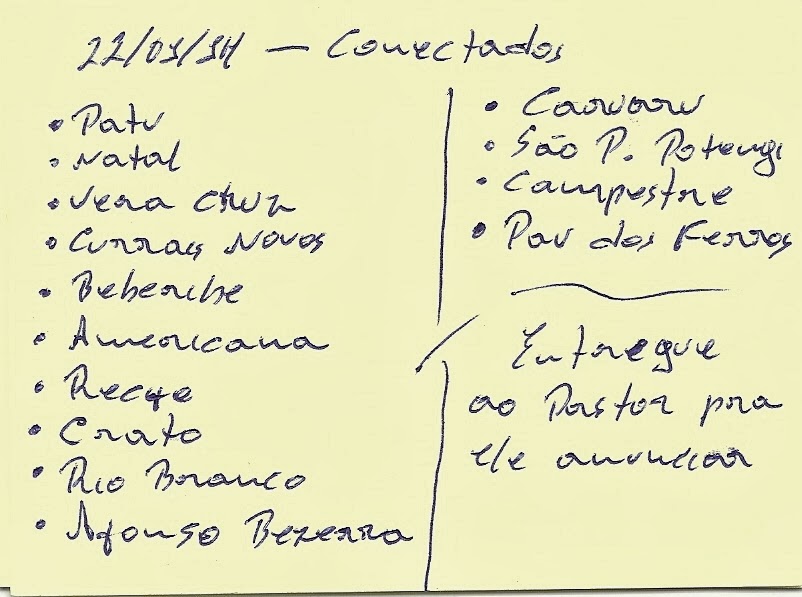 22/01/14 — Conectados
• Patu
• Natal
• Vera Cruz
• Currais Novos
• Beberibe
• Americana
• Recife
• Crato
• Rio Branco
• Afonso Bezerra
• Caruaru
• São P. Potengi
• Campestre
• Pau dos Ferros
Entregue
ao Pastor pra
ele anunciar